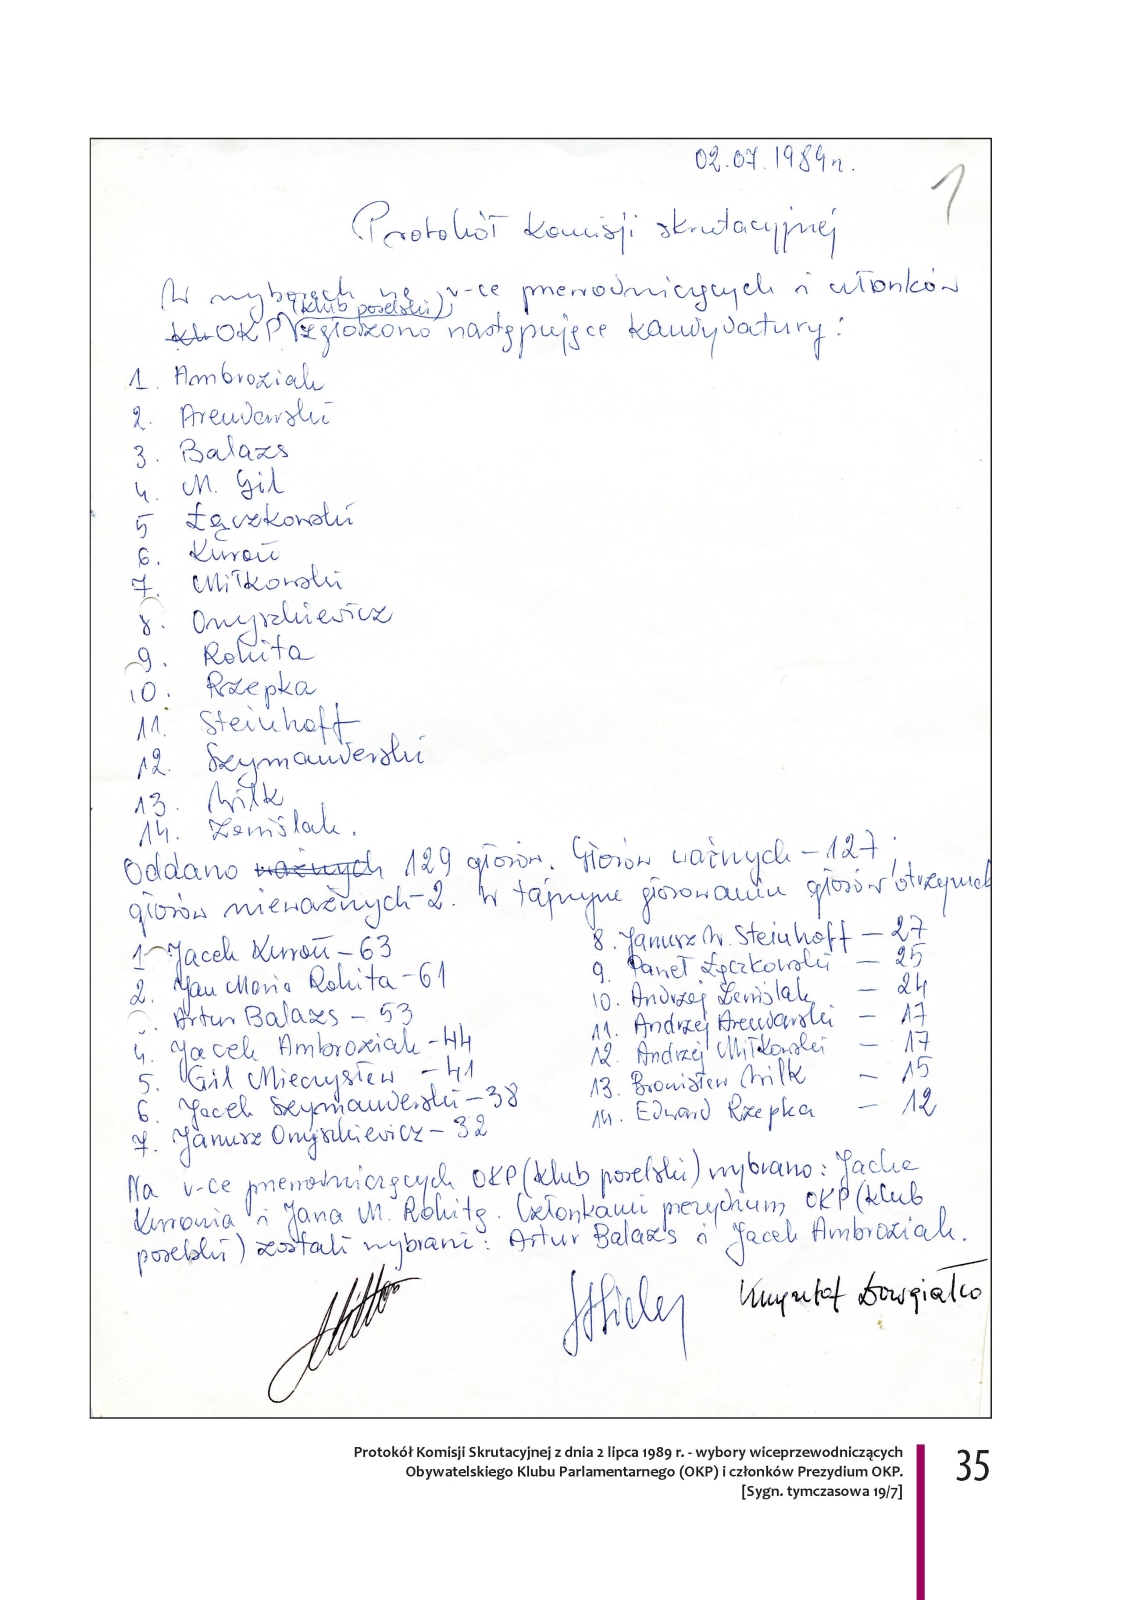 02.07.1989r.
1
Protokół Komisji skrutacyjnej
W wyborach na v-ce przewodniczących i członków
(klub poselski)
OKP zgłoszono następujące kandydatury:
1. Ambroziak
2. Arendarski
3. Balazs
4. M. Gil
5 Łączkowski
6. Kuroń
7. Miłkowski
8. Onyszkiewicz
9. Rokita
10. Rzepka
11. Steinhoff
12. Szymanderski
13. Wilk
14. Zawiślak.
Oddano ważnych 129 głosów. Głosów ważnych – 127,
głosów nieważnych – 2. W tajnym głosowaniu głosów otrzymali
1 Jacek Kuroń – 63
2. Jan Maria Rokita – 61
Artur Balazs – 53
4. Jacek Ambroziak – 44
5. Gil Mieczysław – 41
6. Jacek Szymanderski – 38
7. Janusz Onyszkiewicz – 32
8. Janusz W. Steinhoff – 27
9. Paweł Łączkowski – 25
10. Andrzej Zawiślak – 24
11. Andrzej Arendarski – 17
12. Andrzej Miłkowski – 17
13. Bronisław Wilk – 15
14. Edward Rzepka – 12
Na v-ce przewodniczących OKP (klub poselski) wybrano: Jacka
Kuronia i Jana M. Rokitę. Członkami prezydium OKP (klub
poselski) zostali wybrani: Artur Balazs i Jacek Ambroziak.
Krzysztof Dowgiałło
Protokół Komisji Skrutacyjnej z dnia 2 lipca 1989 r. - wybory wiceprzewodniczących
Obywatelskiego Klubu Parlamentarnego (OKP) i członków Prezydium OKP.
[Sygn. tymczasowa 19/7]
35